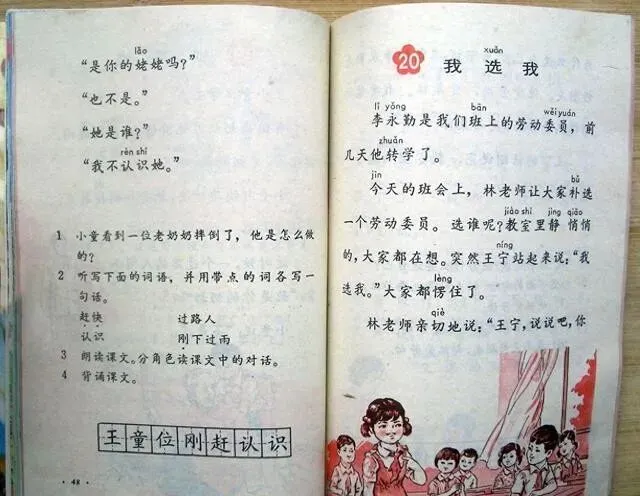 lǎo
“是你的姥姥吗？”
“也不是。”
“她是谁？”
rèn shi
“我不认识她。”
1 小童看到一位老奶奶摔倒了，他是怎么做
的？
2 听写下面的词语，并用带点的词各写一
句话。
赶快 过路人
认识 刚下过雨
3 朗读课文。分角色读课文中的对话。
4 背诵课文。
王童位刚赶认识
· 48 ·
xuǎn
20 我选我
lǐ yǒng bān wěi yuán
李永勤是我们班上的劳动委员，前
zhuǎn
几天他转学了。
jīn bǔ
今天的班会上，林老师让大家补选
jiào shì jìng qiāo
一个劳动委员。选谁呢？教室里静悄悄
níng
的，大家都在想。突然王宁站起来说：“我
lèng
选我。”大家都愣住了。
qiè
林老师亲切地说：“王宁，说说吧，你